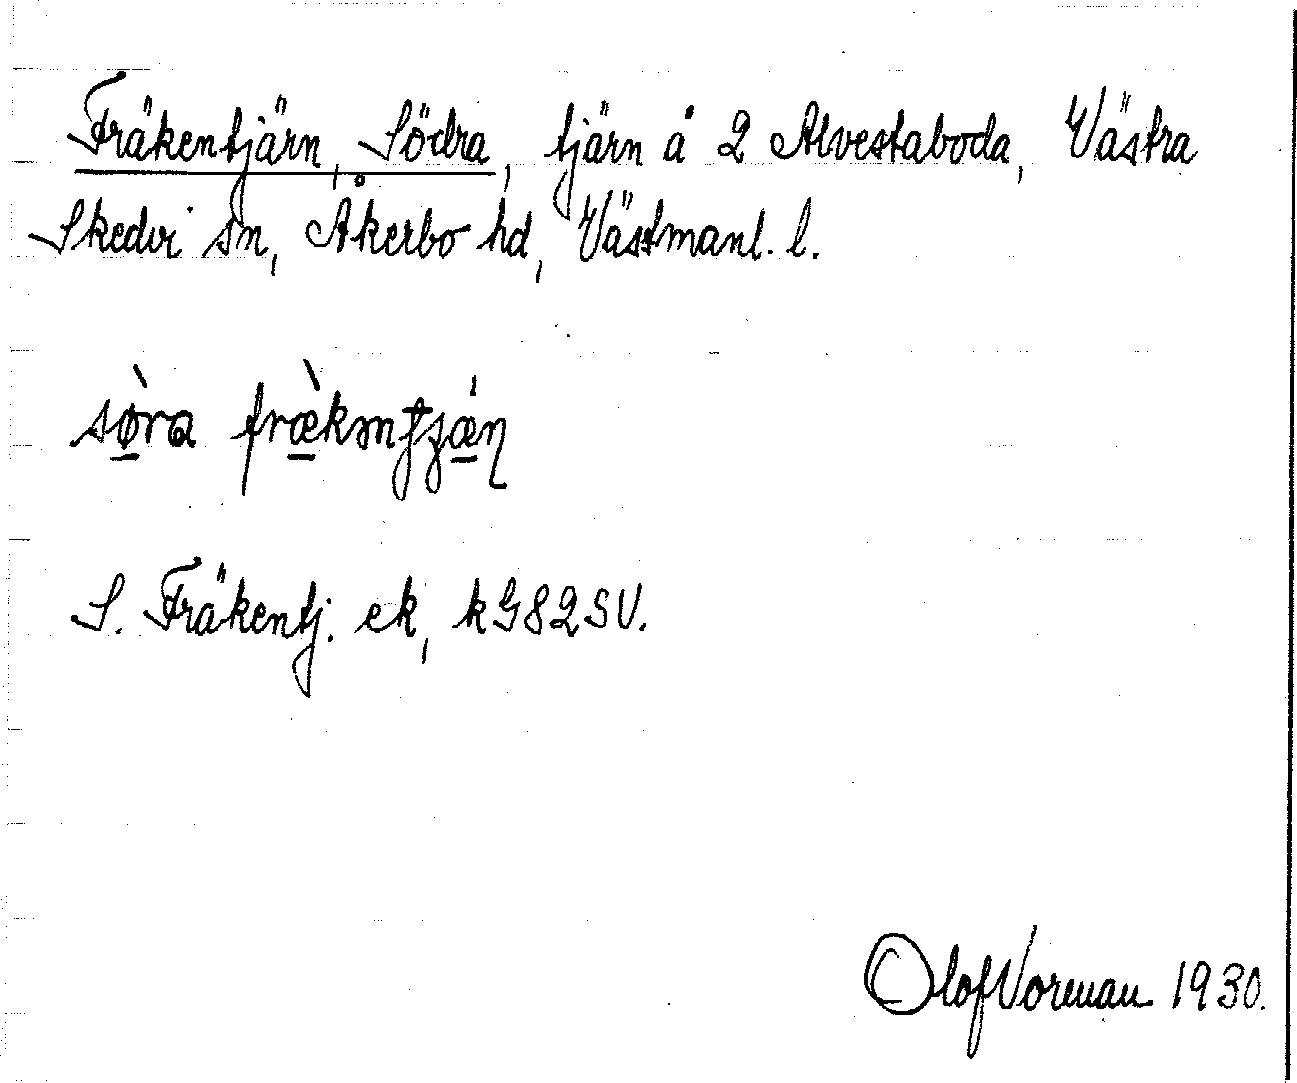 Fräkentjärn, Södra, tjärn å 2 Alvestaboda, Västra
Skedvi sn, Åkerbo hd, Västmanl. l.
sø̀ra fræ̀km
S. Fräkentj. ek, kG82SV.
Olof Vorman 1930.